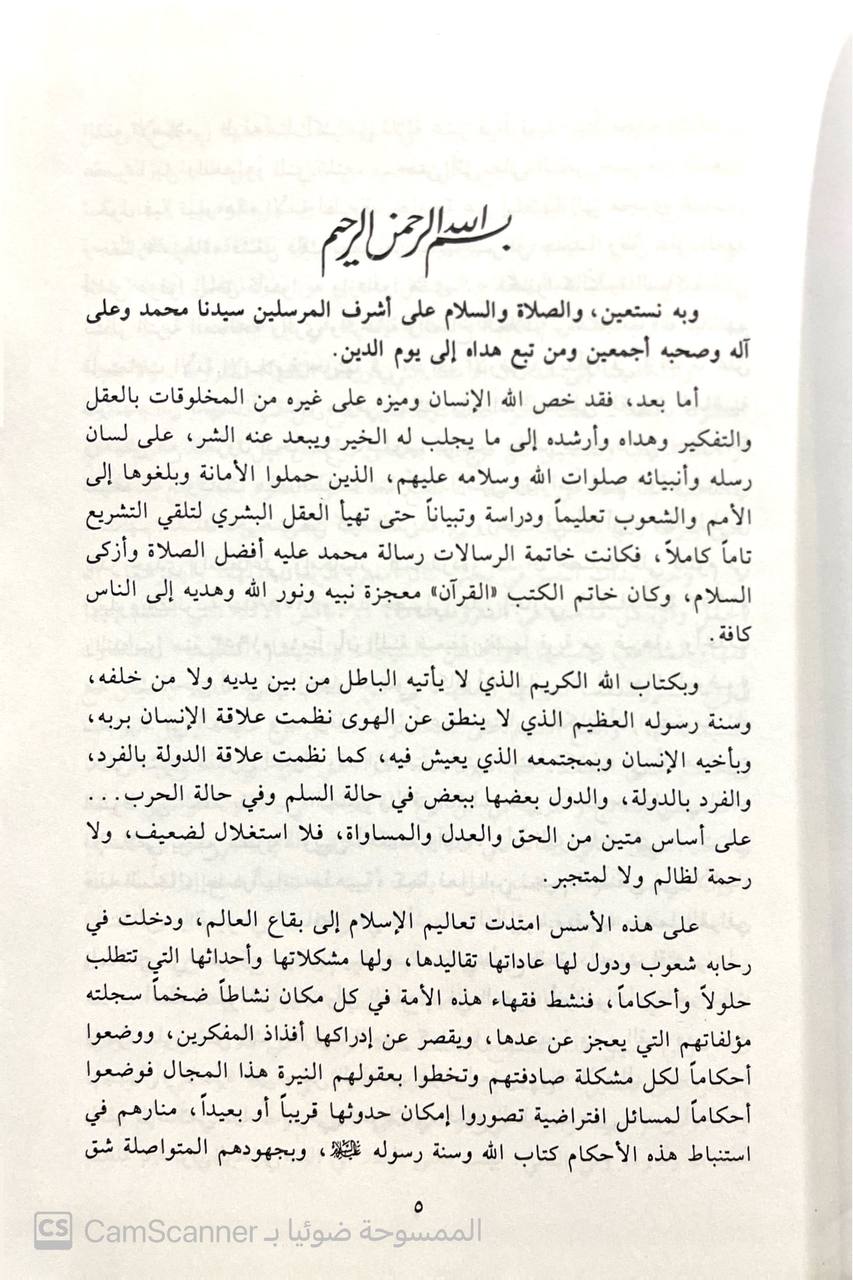 بسم الله الرحمن الرحيم
وبه نستعين، والصلاة والسلام على أشرف المرسلين سيدنا محمد وعلى
آله وصحبه أجمعين ومن تبع هداه إلى يوم الدين.
أما بعد، فقد خص الله الإنسان وميزه على غيره من المخلوقات بالعقل
والتفكير وهداه وأرشده إلى ما يجلب له الخير ويبعد عنه الشر، على لسان
رسله وأنبيائه صلوات الله وسلامه عليهم، الذين حملوا الأمانة وبلغوها إلى
الأمم والشعوب تعليماً ودراسة وتبياناً حتى تهيأ العقل البشري لتلقي التشريع
تاماً كاملاً، فكانت خاتمة الرسالات رسالة محمد عليه أفضل الصلاة وأزكى
السلام، وكان خاتم الكتب «القرآن» معجزة نبيه ونور الله وهديه إلى الناس
كافة.
وبكتاب الله الكريم الذي لا يأتيه الباطل من بين يديه ولا من خلفه،
وسنة رسوله العظيم الذي لا ينطق عن الهوى نظمت علاقة الإنسان بربه،
وبأخيه الإنسان وبمجتمعه الذي يعيش فيه، كما نظمت علاقة الدولة بالفرد،
والفرد بالدولة، والدول بعضها ببعض في حالة السلم وفي حالة الحرب...
على أساس متين من الحق والعدل والمساواة، فلا استغلال لضعيف، ولا
رحمة لظالم ولا لمتجبر.
على هذه الأسس امتدت تعاليم الإسلام إلى بقاع العالم، ودخلت في
رحابه شعوب ودول لها عاداتها تقاليدها، ولها مشكلاتها وأحداثها التي تتطلب
حلولاً وأحكاماً، فنشط فقهاء هذه الأمة في كل مكان نشاطاً ضخماً سجلته
مؤلفاتهم التي يعجز عن عدها، ويقصر عن إدراكها أفذاذ المفكرين، ووضعوا
أحكاماً لكل مشكلة صادفتهم وتخطوا بعقولهم النيرة هذا المجال فوضعوا
أحكاماً لمسائل افتراضية تصوروا إمكان حدوثها قريباً أو بعيداً، منارهم في
استنباط هذه الأحكام كتاب الله وسنة رسوله ﷺ، وبجهودهم المتواصلة شق
٥
CS CamScanner الممسوحة ضوئيا بـ